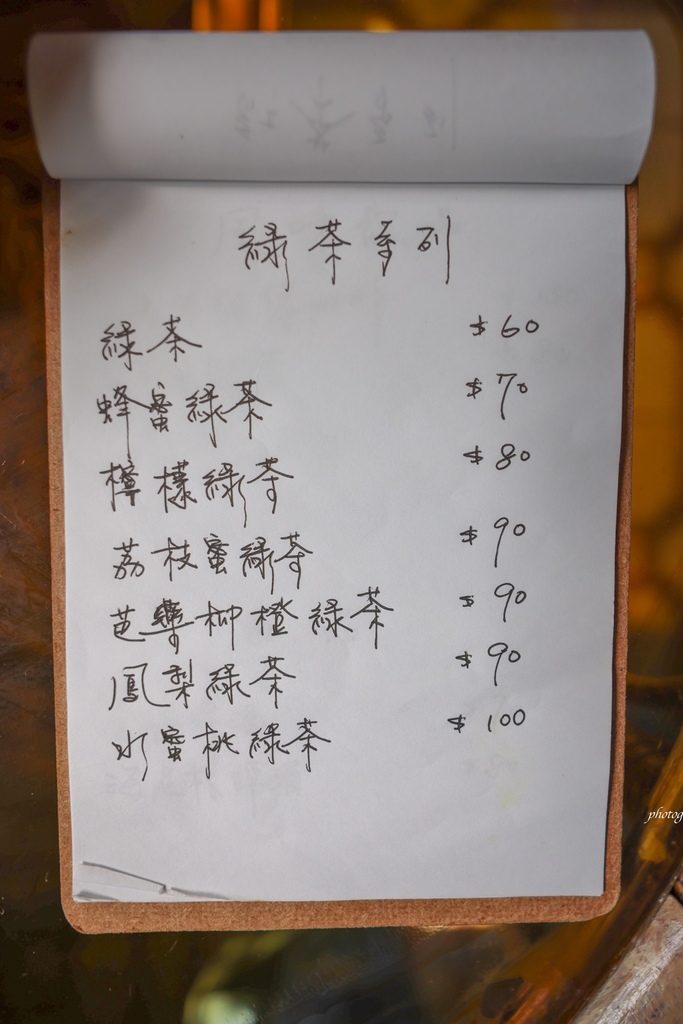 綠茶系列
綠茶 $60
蜂蜜綠茶 $70
檸檬綠茶 $80
荔枝蜜綠茶 $90
芭樂柳橙綠茶 $90
鳳梨綠茶 $90
水蜜桃綠茶 $100
photog